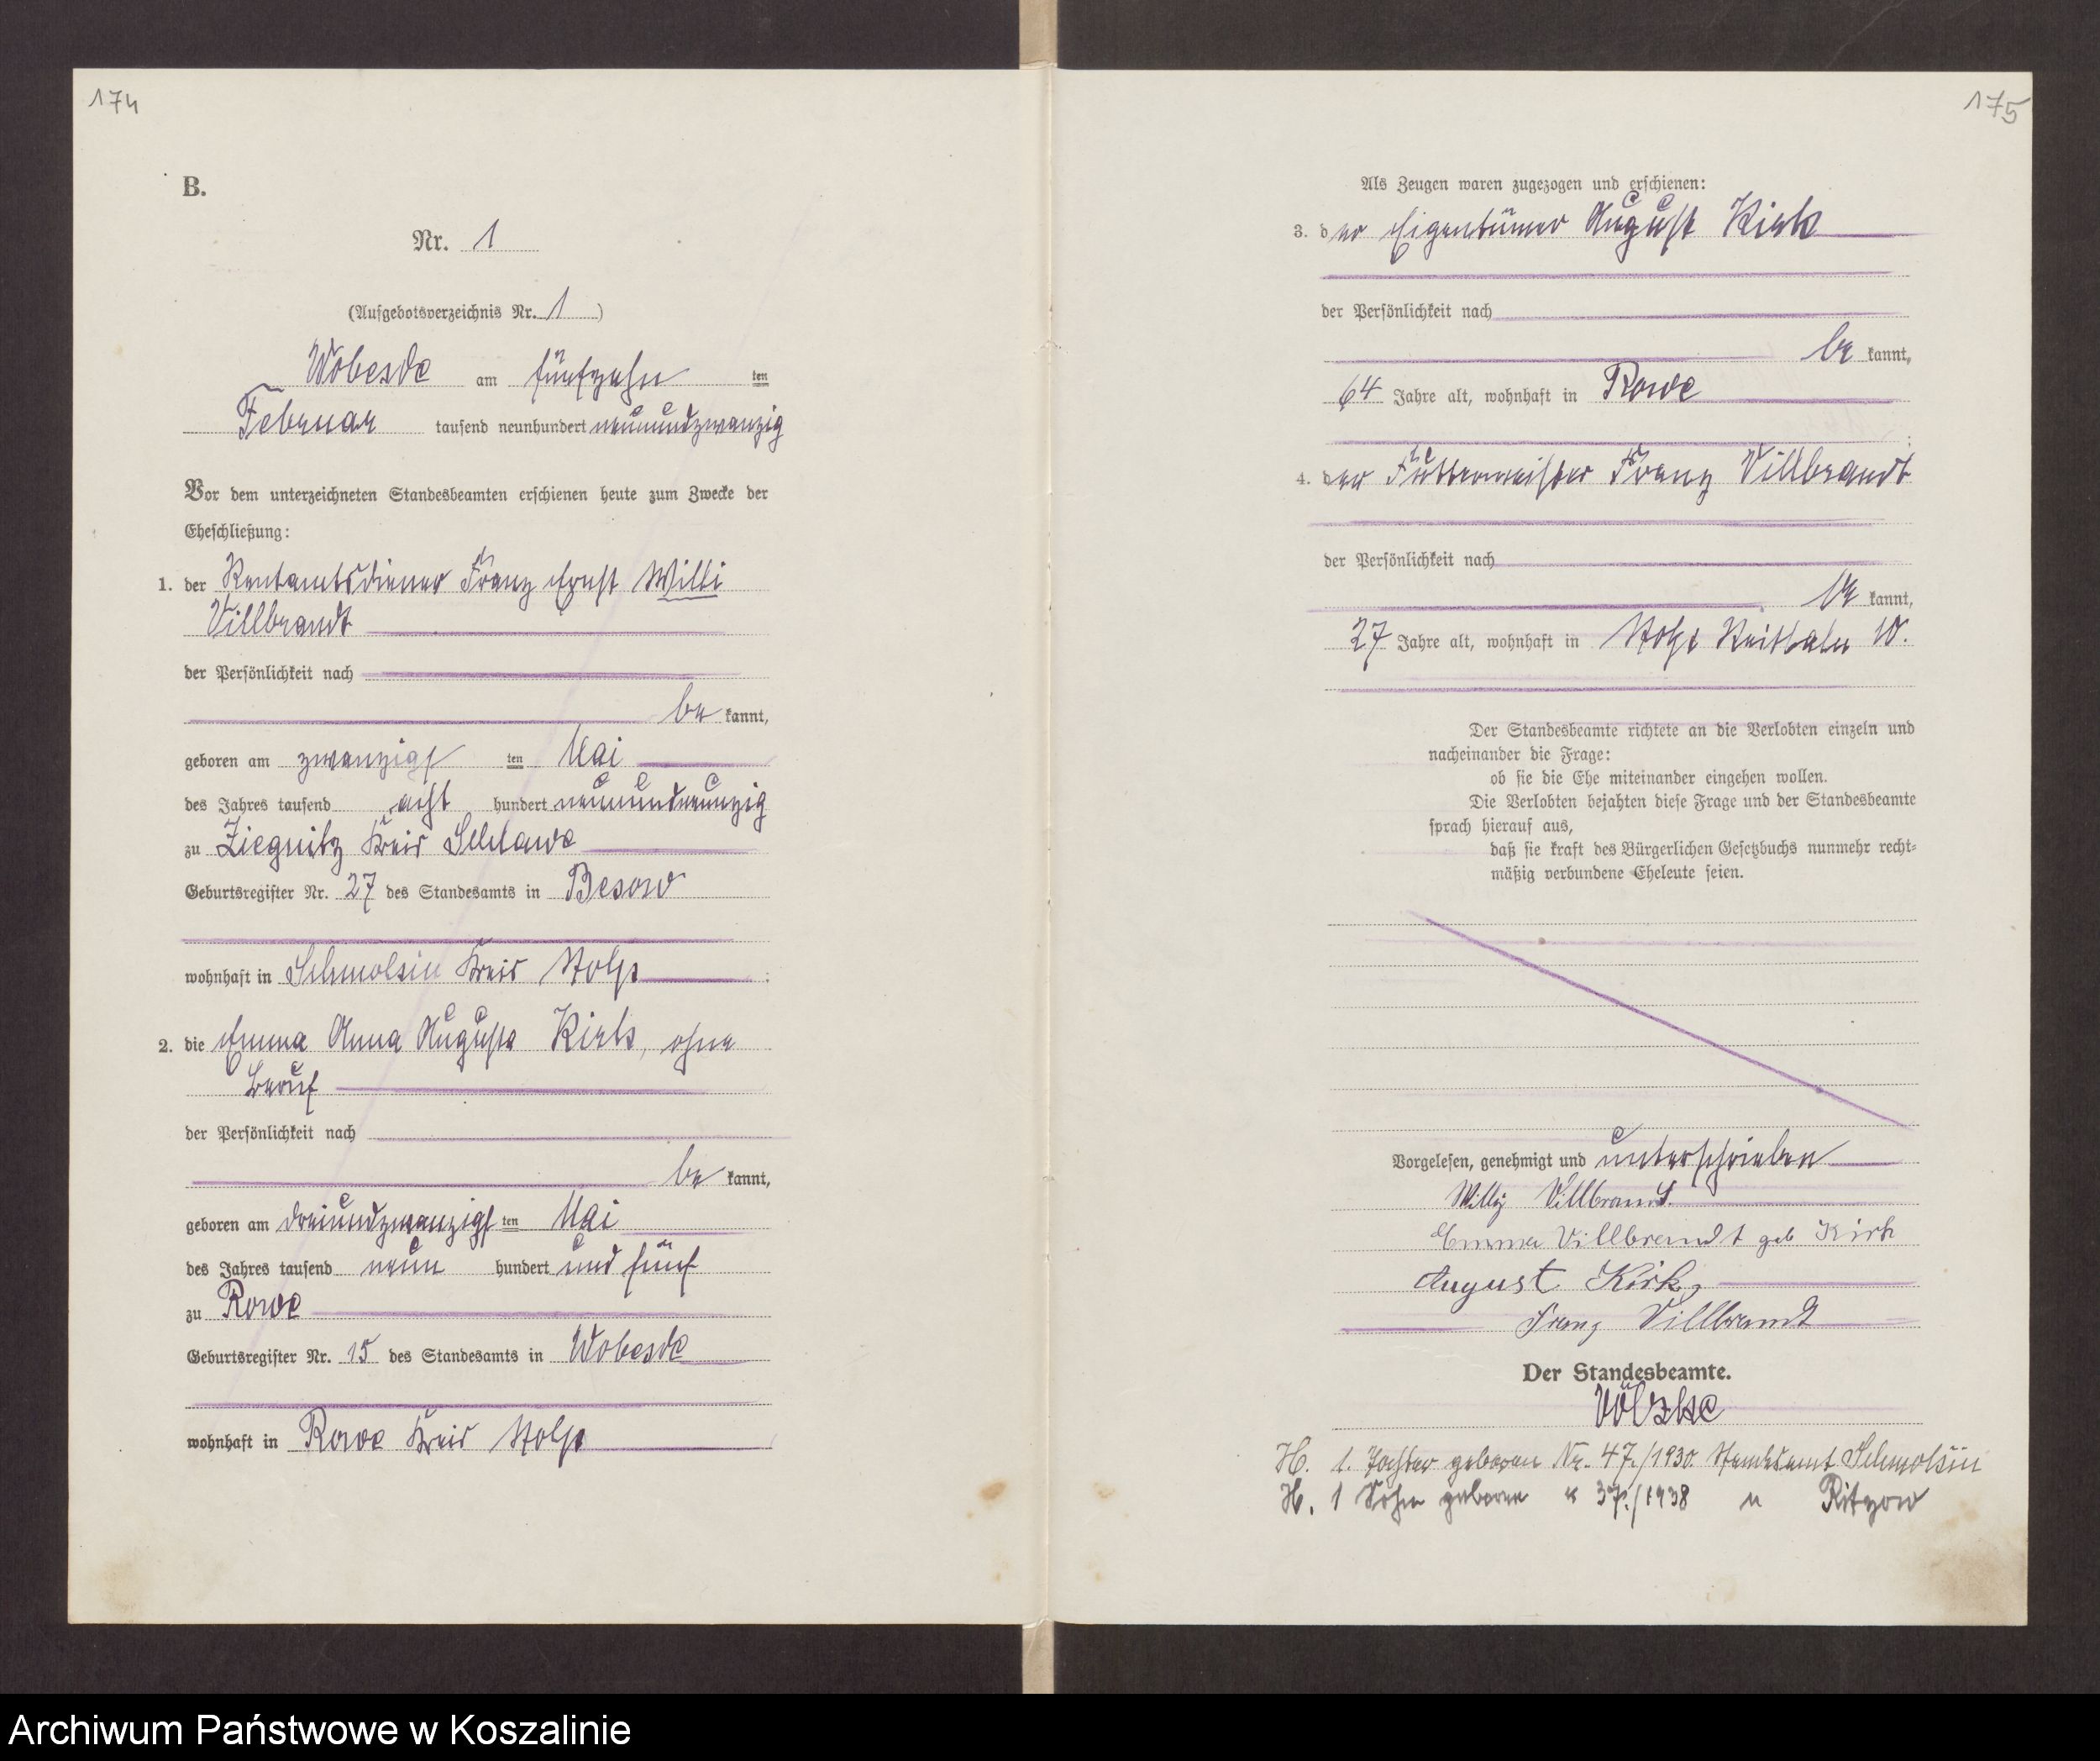 174
B.
Nr. 1
(Aufgebotsverzeichnis Nr. 1)
Wobesde am fünfzehn ten
Februar tausend neunhundert neunundzwanzig
Vor dem unterzeichneten Standesbeamten erschienen heute zum Zwecke der
Eheschließung:
1. der Rentamtsdiener Franz Ernst Willi
Villbrandt
der Persönlichkeit nach
be kannt,
geboren am zwanzigs ten Mai
des Jahres tausend acht hundert neunundneunzig
zu Ziegnitz Kreis Schlawe
Geburtsregister Nr. 27 des Standesamts in Besow
wohnhaft in Schmolsin Kreis Stolp ;
2. die Emma Anna Auguste Kirk, ohne
Beruf
der Persönlichkeit nach
be kannt,
geboren am dreiundzwanzigs ten Mai
des Jahres tausend neun hundert und fünf
zu Rowe
Geburtsregister Nr. 15 des Standesamts in Wobesde
wohnhaft in Rowe Kreis Stolp
175
Als Zeugen waren zugezogen und erschienen:
3. der Eigentümer August Kirk
der Persönlichkeit nach
be kannt,
64 Jahre alt, wohnhaft in Rowe
;
4. der Futtermeister Franz Villbrandt
der Persönlichkeit nach
be kannt,
27 Jahre alt, wohnhaft in Stolp Reitbahn 10.
Der Standesbeamte richtete an die Verlobten einzeln und
nacheinander die Frage:
ob sie die Ehe miteinander eingehen wollen.
Die Verlobten bejahten diese Frage und der Standesbeamte
sprach hierauf aus,
daß sie kraft des Bürgerlichen Gesetzbuchs nunmehr recht-
mäßig verbundene Eheleute seien.
Vorgelesen, genehmigt und unterschrieben
Willy Villbrandt.
Emma Villbrandt geb Kirk
August Kirk,
Franz Villbrandt
Der Standesbeamte.
Völzke
H. 1. Tochter geboren Nr. 47./1930. Standesamt Schmolsin
H. 1 Sohn geboren " 37./1938 " Ritzow
Archiwum Państwowe w Koszalinie